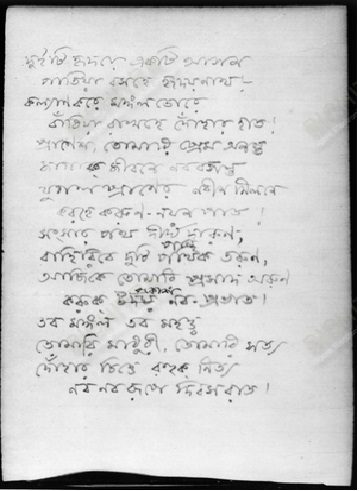 দুইটি হৃদয়ে একটি আসন
পাতিয়া বসহে হৃদয়নাথ!
কল্যাণকরে মঙ্গলডোরে
বাঁধিয়া রাখহে দোঁহার হাত!
প্রাণেশ, তোমারি প্রেম অনন্ত
জাগাক জীবনে নববসন্ত
যুগল প্রাণের নবীন মিলনে
করহে করুণ-নয়ন পাত!
সংসার পথ দীর্ঘ দারুণ,
বাহিরিবে দুটি পান্থ তরুণ,
আজিকে তোমারি প্রসাদ অরুণ
করুক উদয় নব-প্রভাত!
তব মঙ্গল তব মহত্ত্ব
তোমারি মাধুরী, তোমারি সত্য
দোঁহার চিত্তে রহুক নিত্য
নব নব রূপে দিবসরাত!